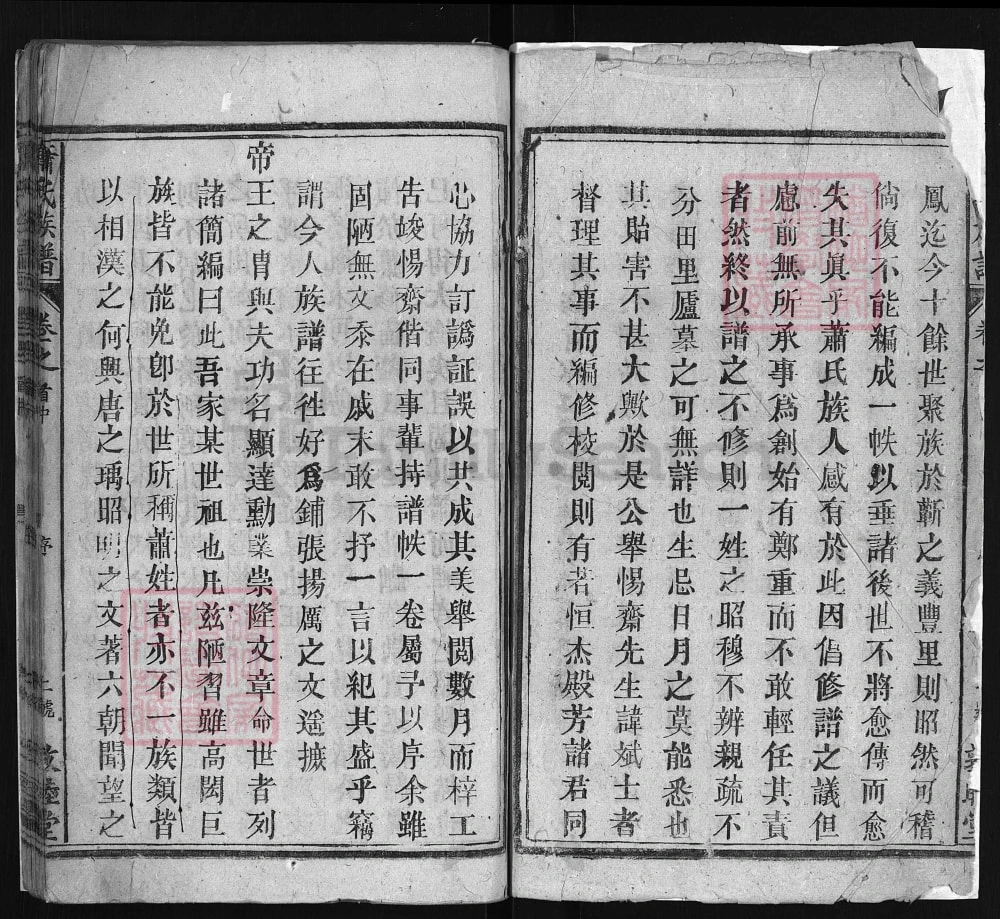 鳳迄今十餘世聚族於蘄之義豐里則昭然可稽
倘復不能編成一帙以垂諸後世不將愈傳而愈
失其真乎蕭氏族人感有於此因倡修譜之議但
慮前無所承事爲創始有鄭重而不敢輕任其責
者然終以譜之不修則一姓之昭穆不辨親疏不
分田里廬墓之可無詳也生忌日月之莫能悉也
其貽害不甚大歟於是公舉惕齋先生諱斌士者
督理其事而編修校閱則有若恒杰殿芳諸君同
心協力訂譌証誤以共成其美舉閱數月而梓工
告竣惕齋偕同事輩持譜帙一卷屬予以序余雖
固陋無文忝在戚末敢不抒一言以紀其盛乎竊
謂今人族譜往徃好爲鋪張揚厲之文遥摭
帝王之胄與夫功名顯達勳業崇隆文章命世者列
諸簡編曰此吾家某世祖也凡兹陋習雖高閎巨
族皆不能免卽於世所稱蕭姓者亦不一族類皆
以相漢之何興唐之瑀昭明之文著六朝聞望之
蕭氏族譜
卷之首中
序
敦睦堂